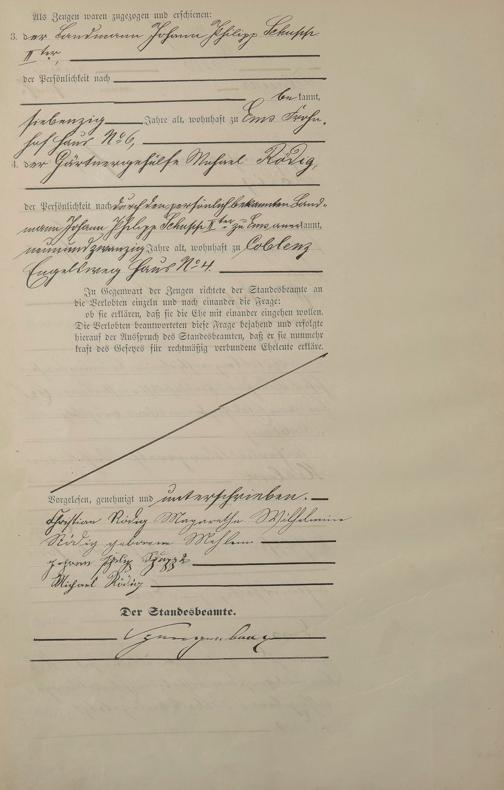 Als Zeugen waren zugezogen und erschienen:
3. der Landmann Johann Philipp Schupp
IIter,
der Persönlichkeit nach
be kannt,
siebenzig Jahre alt, wohnhaft zu Ems Frohn-
hof Haus No 6,
4. der Gärtnergehülfe Michael Rödig,
der Persönlichkeit nach durch den persönlich bekannten Land-
mann Johann Philipp Schupp IIter zu Ems anerkannt,
neunundzwanzig Jahre alt, wohnhaft zu Coblenz
Engelsweg Haus No 4.
In Gegenwart der Zeugen richtete der Standesbeamte an
die Verlobten einzeln und nach einander die Frage:
ob sie erklären, daß sie die Ehe mit einander eingehen wollen.
Die Verlobten beantworteten diese Frage bejahend und erfolgte
hierauf der Ausspruch des Standesbeamten, daß er sie nunmehr
kraft des Gesetzes für rechtmäßig verbundene Eheleute erkläre.
Vorgelesen, genehmigt und unterschrieben.
Christian Rödig Magaretha Wilhelmine
Rödig geborene Mehlem
Johann Philip Schupp 2
Michael Rödig
Der Standesbeamte.